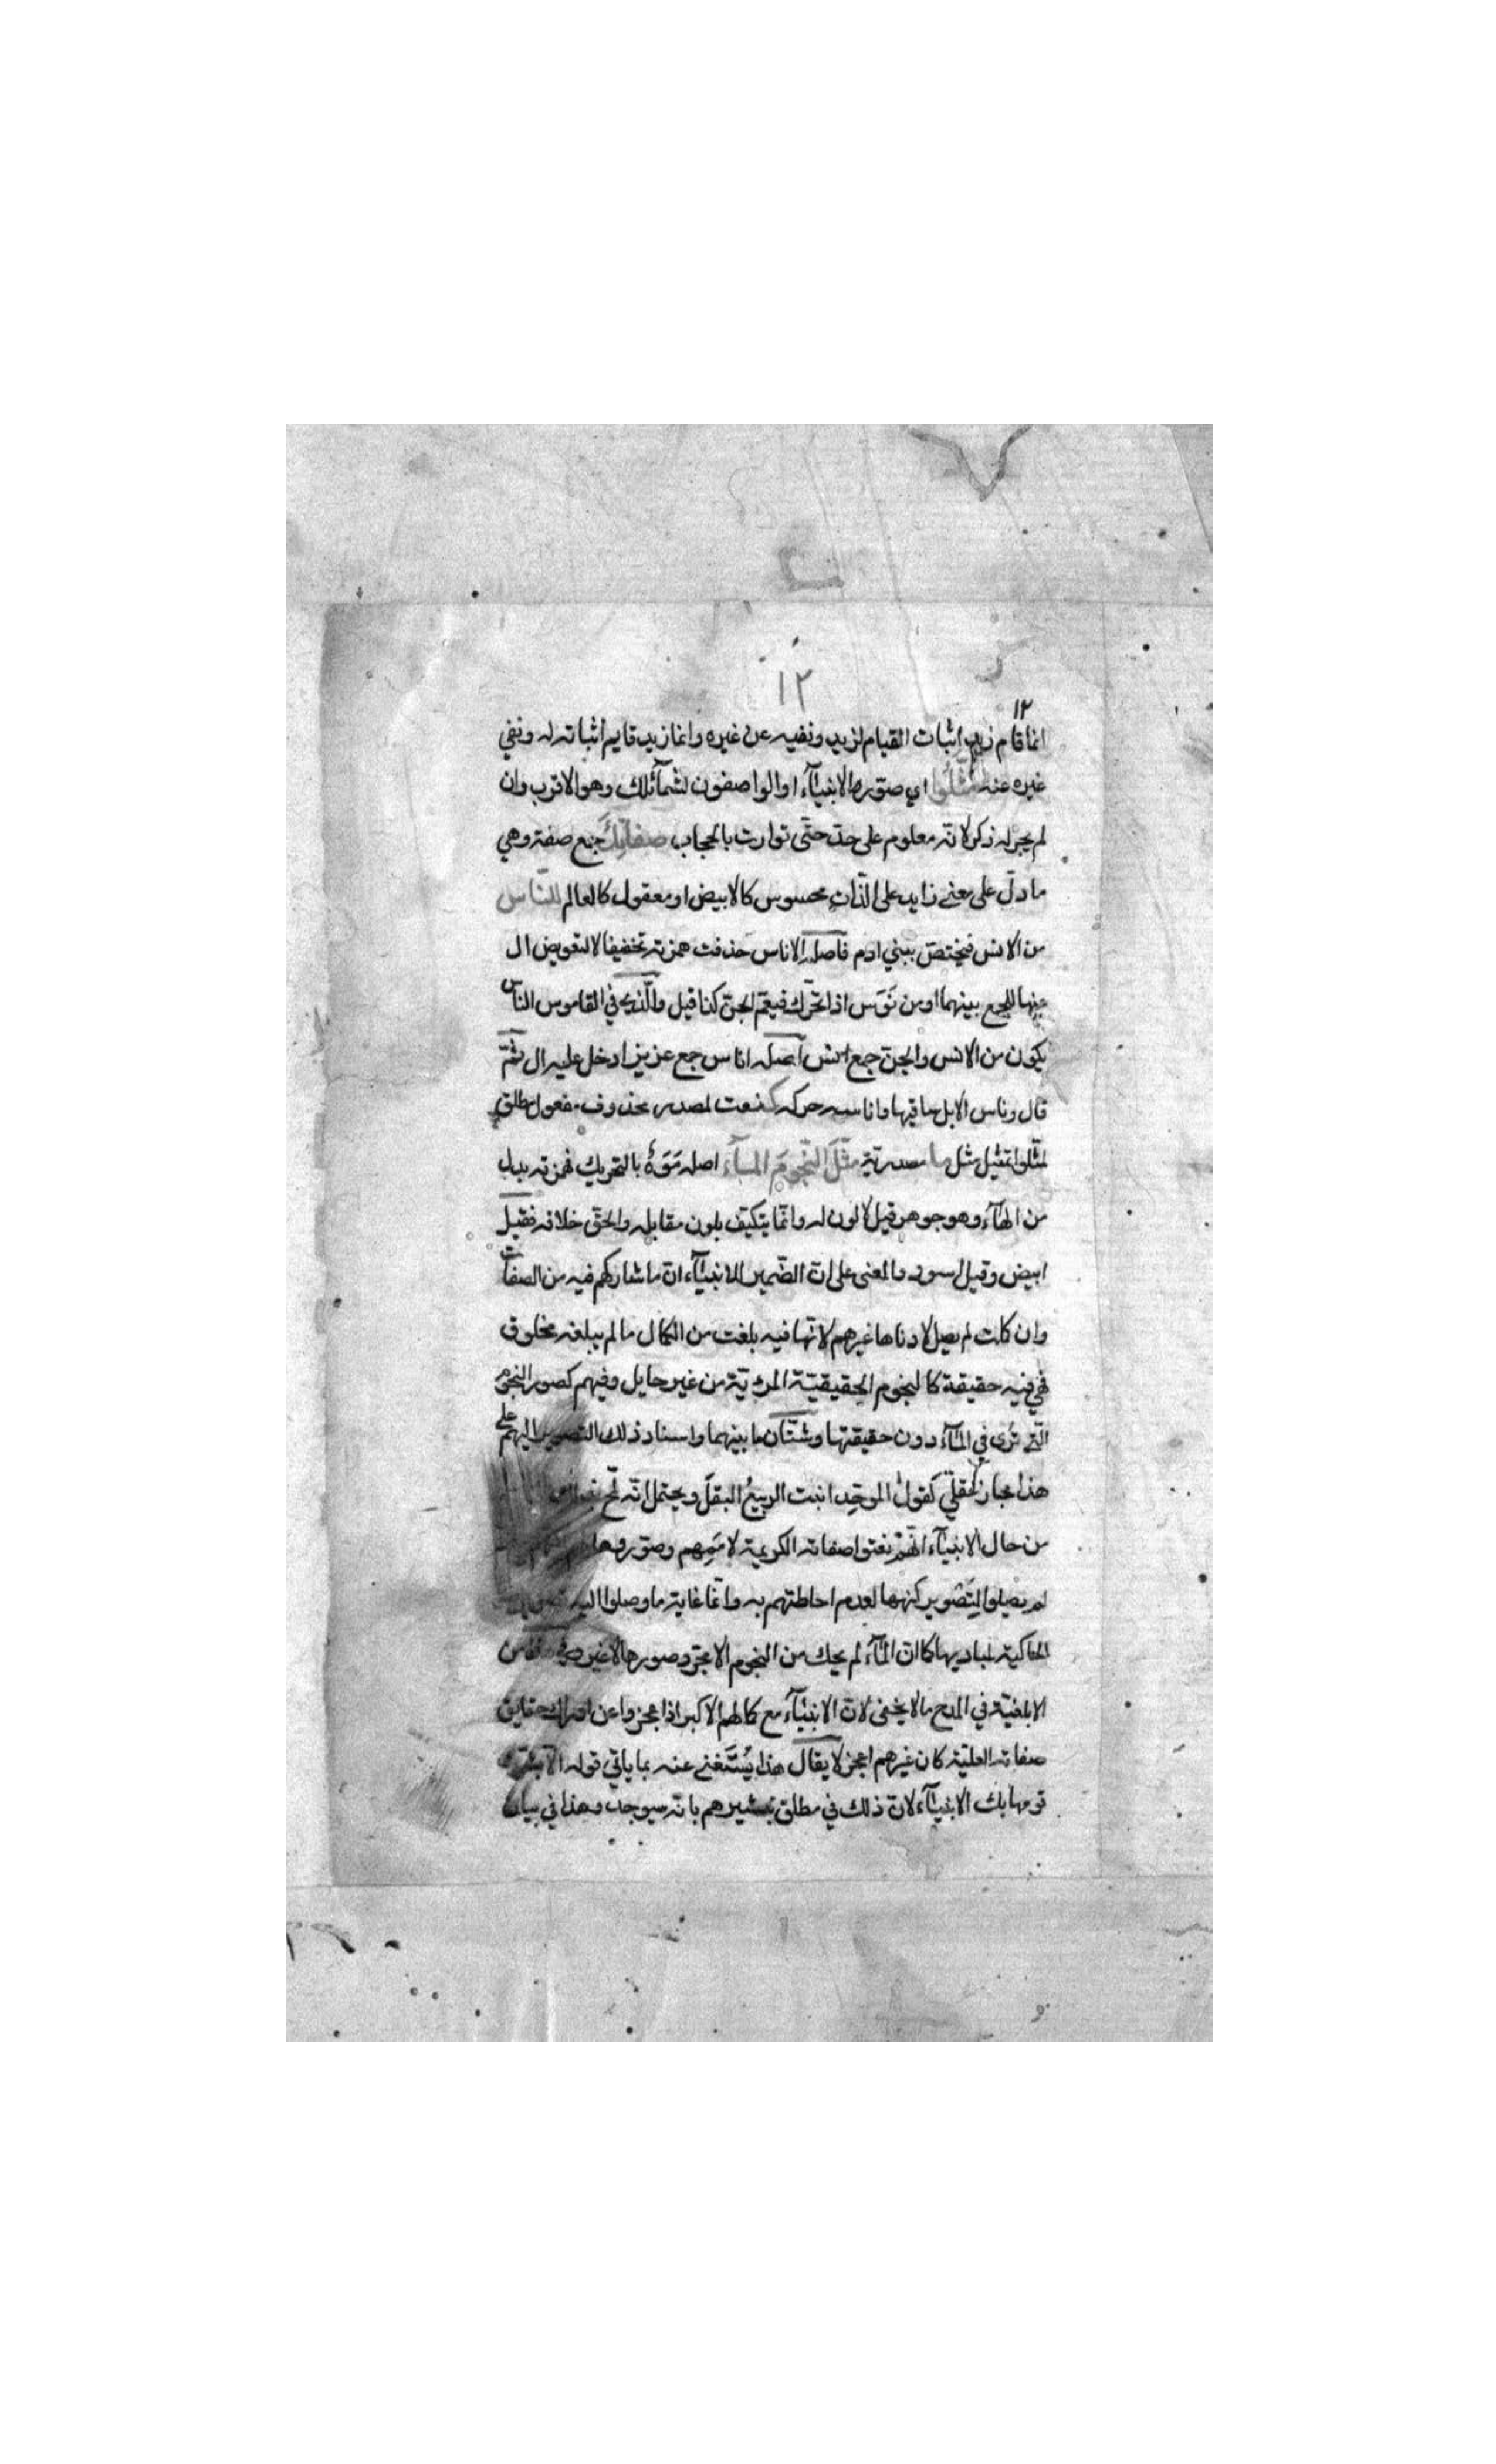 ١٢
١٢
انما قام زيد اثبات القيام لزيد ونفيه عن غيره وانما زيد قايم اثباته له ونفي
غيره عنه مثّلوا اي صوّر الانبيآء او الواصفون لشمآئلك وهو الاقرب وان
لم يجر له ذكر لانّه معلوم على حدّ حتّى توارت بالحجاب صفاتك جمع صفة وهي
ما دلّ على معنى زايد على الذّات محسوس كالابيض او معقول كالعالم للنّاس
من الانس فيختصّ ببني ادم فاصله الاناس حذفت همزته تخفيفا لا لتعويض ال
عنها للجمع بينهما او من نَوَس اذا تحرّك فيعمّ الجنّ كذا قيل والّذي في القاموس الناس
يكون من الانس والجنّ جمع انس اصله اناس جمع عزيز ادخل عليه ال ثمّ
قال وناس الابل ساقها واناسه حركه كـ نعت لمصدر محذوف مفعول مطلق
لمثّلوا تمثيل مثل ما مصدريّة مثّل النّجومَ المآء اصله مَوَهٌ بالتحريك فهمزته بدل
من الهآء وهو جوهر قيل لا لون له وانّما يتكيّف بلون مقابله والحقّ خلافه فقيل
ابيض وقيل اسود والمعنى على انّ الضّمير للانبيآء انّ ما شاركهم فيه من الصفات
وان كانت لم يصل لادناها غيرهم لانّها فيه بلغت من الكمال ما لم يبلغه مخلوق
فهي فيه حقيقة كالنجوم الحقيقيّة المرئيّة من غير حايل وفيهم كصور النجوم
الّتي تُرى في المآء دون حقيقتها وشتّان ما بينهما واسناد ذلك التصوير اليهم على
هذا مجاز عقليّ كقول الموحّد انبت الربيعُ البقلَ ويحتمل انّه
من حال الانبيآء انّهم نعتوا صفاته الكريمة لاممهم وصوّروها
لم يصلوا لتصوير كنهها لعدم احاطتهم به وانّما غاية ما وصلوا اليه
الحاكية لمباديها كما انّ المآء لم يحك من النجوم الا مجرّد صورها لا غير
الابلغيّة في المدح ما لا يخفى لانّ الانبيآء مع كمالهم الاكبر اذا عجزوا عن ادراك حقايق
صفاته العليّة كان غيرهم اعجز لا يقال هذا يُسْتَغنى عنه بما ياتي قوله الا بشّرت
قومها بك الانبيآء لانّ ذلك في مطلق تبشيرهم بانّه سيوجد وهذا في بيان